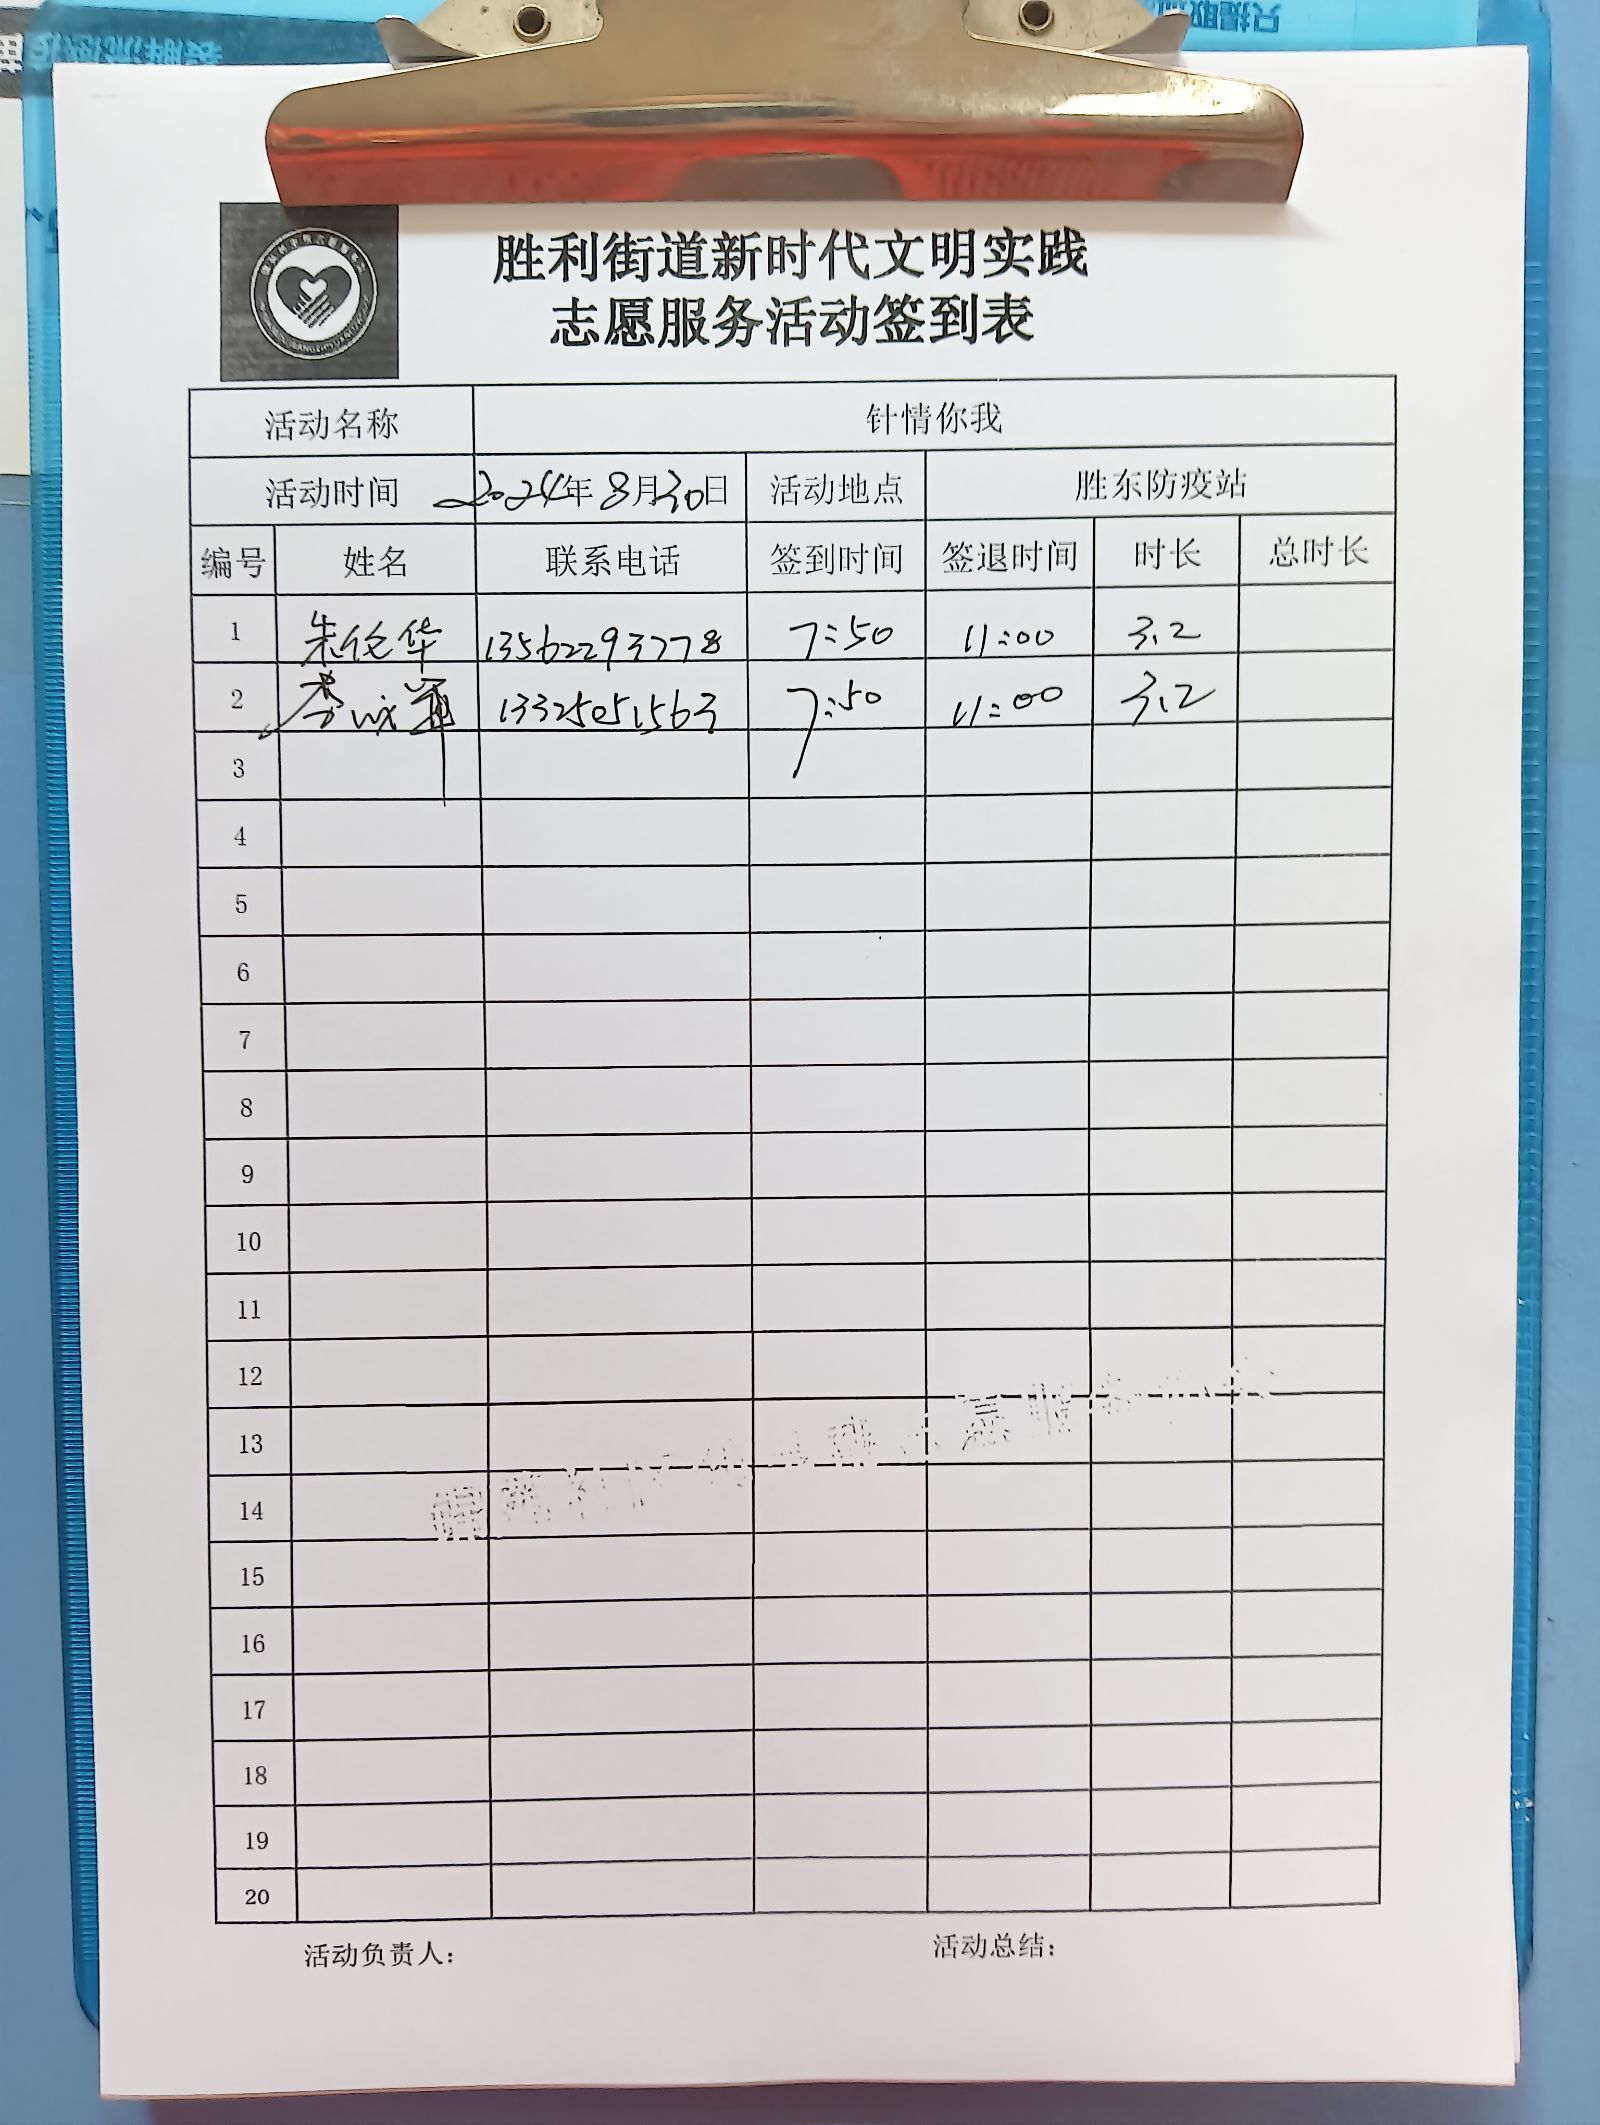 胜利街道新时代文明实践
志愿服务活动签到表
活动名称 针情你我
活动时间 2024年8月30日 活动地点 胜东防疫站
编号 姓名 联系电话 签到时间 签退时间 时长 总时长
1 朱伦华 13562293778 7:50 11:00 3.2
2 李 13325051563 7:50 11:00 3.2
3
4
5
6
7
8
9
10
11
12
13
14
15
16
17
18
19
20
活动负责人： 活动总结：